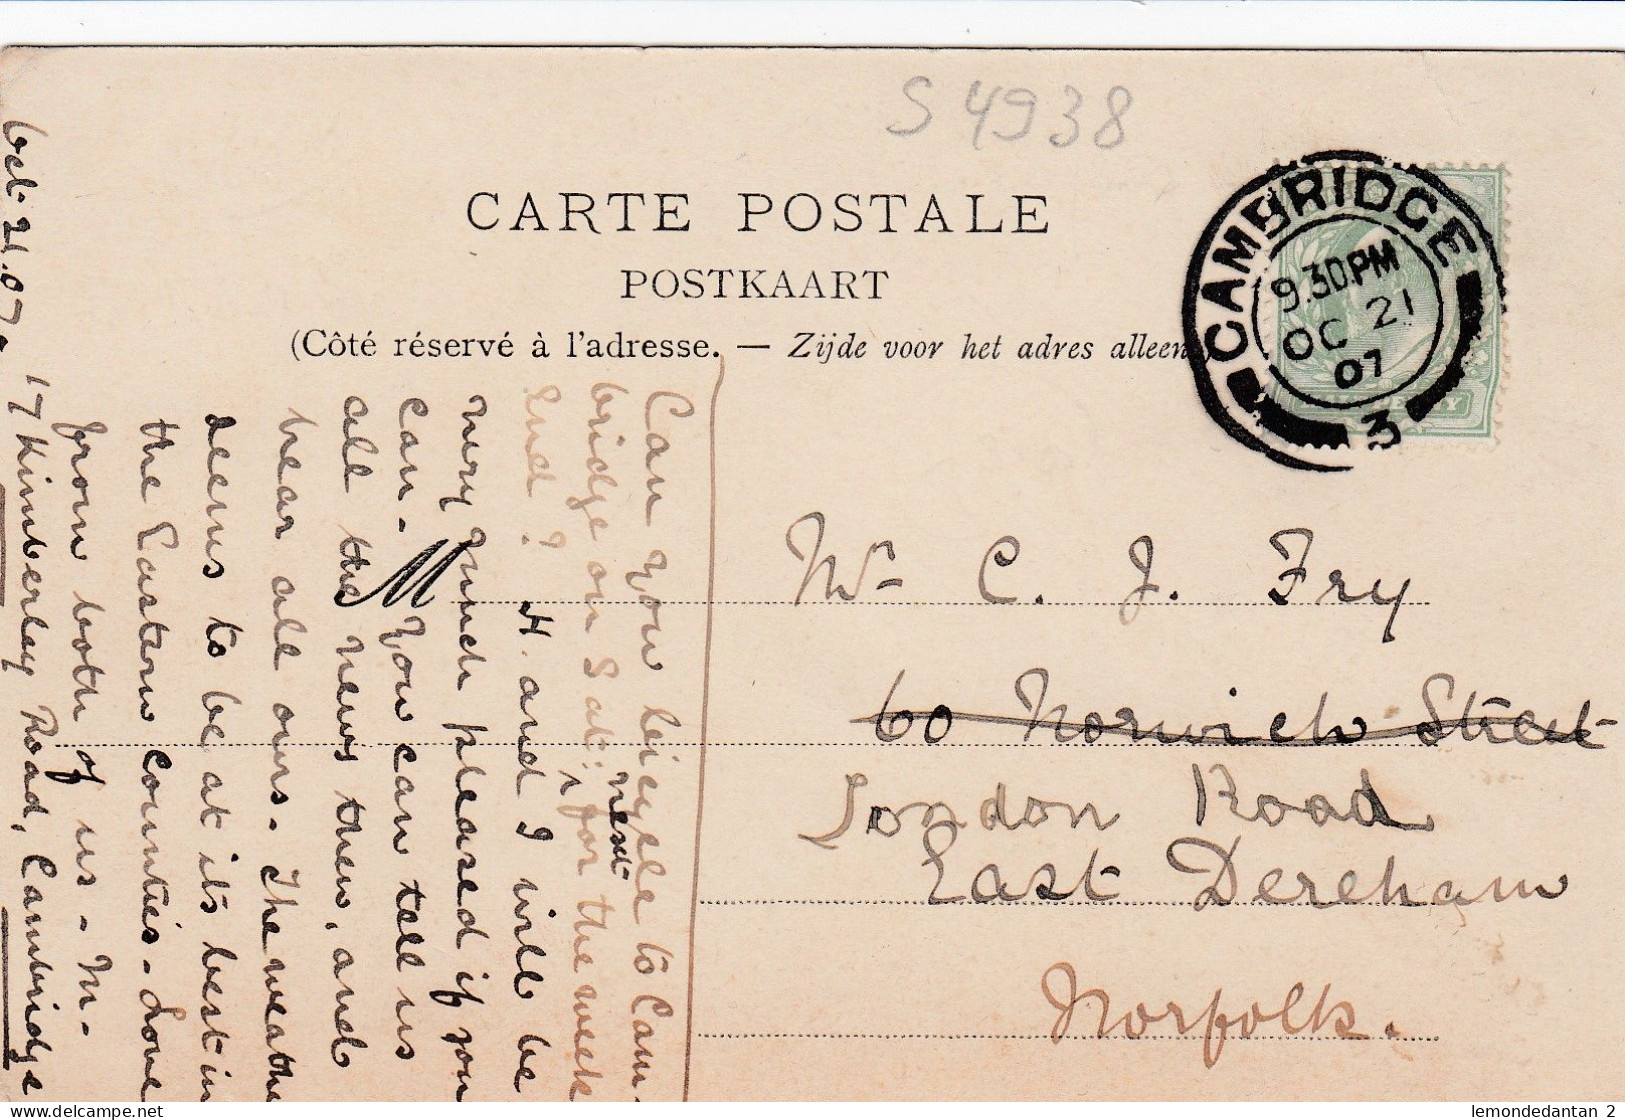 S 4938
CARTE POSTALE
POSTKAART
(Côté réservé à l'adresse. — Zijde voor het adres alleen.)
CAMBRIDGE
9.30PM
OC 21
07
3
HALFPENNY
M
Mr C. J. Fry
60 Norwich Street
London Road
East Dereham
Norfolk.
Oct. 21. 07.
17 Kimberley Road, Cambridge
Can you bicycle to Cam-
bridge on Sat: next for the week
End? H. and I will be
very much pleased if you
can. You can tell us
all the news then, and
hear all ours. The weather
seems to be at its best in
the Eastern Counties. Love
from both of us. M.
www.delcampe.net
lemondedantan_2